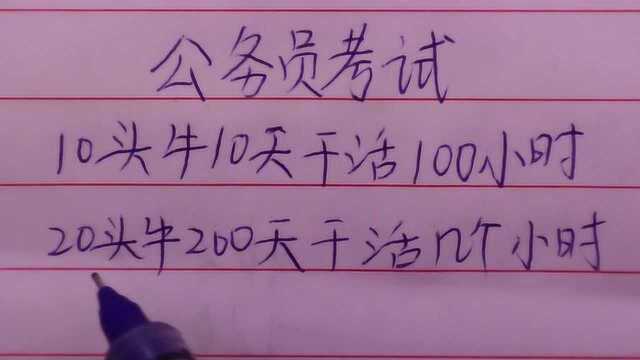 公务员考试
10头牛10天干活100小时
20头牛200天干活几个小时